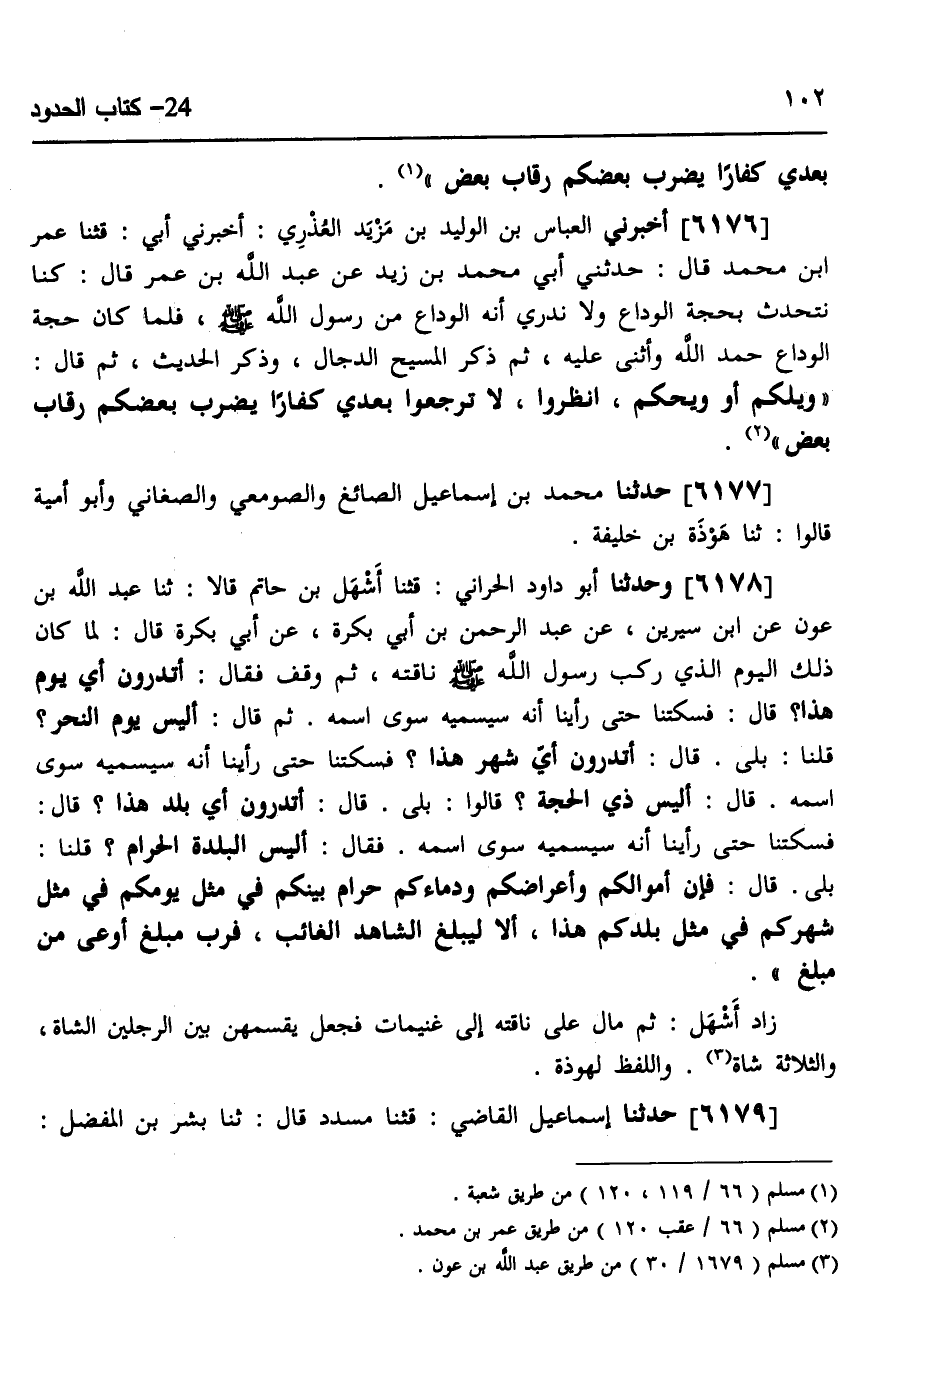 ١٠٢
24- كتاب الحدود
بعدي كفارًا يضرب بعضكم رقاب بعض »(١) .
[٦١٧٦] أخبرني العباس بن الوليد بن مَزْيَد العُذْرِي : أخبرني أبي : قثنا عمر
ابن محمد قال : حدثني أبي محمد بن زيد عن عبد اللَّه بن عمر قال : كنا
نتحدث بحجة الوداع ولا ندري أنه الوداع من رسول اللَّه ﷺ ، فلما كان حجة
الوداع حمد اللَّه وأثنى عليه ، ثم ذكر المسيح الدجال ، وذكر الحديث ، ثم قال :
« ويلكم أو ويحكم ، انظروا ، لا ترجعوا بعدي كفارًا يضرب بعضكم رقاب
بعض »(٢) .
[٦١٧٧] حدثنا محمد بن إسماعيل الصائغ والصومعي والصغاني وأبو أمية
قالوا : ثنا هَوْذَة بن خليفة .
[٦١٧٨] وحدثنا أبو داود الحراني : قثنا أَشْهَل بن حاتم قالا : ثنا عبد الله بن
عون عن ابن سيرين ، عن عبد الرحمن بن أبي بكرة ، عن أبي بكرة قال : لما كان
ذلك اليوم الذي ركب رسول اللَّه ﷺ ناقته ، ثم وقف فقال : أتدرون أي يوم
هذا؟ قال : فسكتنا حتى رأينا أنه سيسميه سوى اسمه . ثم قال : أليس يوم النحر ؟
قلنا : بلى . قال : أتدرون أيّ شهر هذا ؟ فسكتنا حتى رأينا أنه سيسميه سوى
اسمه . قال : أليس ذي الحجة ؟ قالوا : بلى . قال : أتدرون أي بلد هذا ؟ قال :
فسكتنا حتى رأينا أنه سيسميه سوى اسمه . فقال : أليس البلدة الحرام ؟ قلنا :
بلى . قال : فإن أموالكم وأعراضكم ودماءكم حرام بينكم في مثل يومكم في مثل
شهركم في مثل بلدكم هذا ، ألا ليبلغ الشاهد الغائب ، فرب مبلغ أوعى من
مبلغ » .
زاد أَشْهَل : ثم مال على ناقته إلى غنيمات فجعل يقسمهن بين الرجلين الشاة ،
والثلاثة شاة(٣) . واللفظ لهوذة .
[٦١٧٩] حدثنا إسماعيل القاضي : قثنا مسدد قال : ثنا بشر بن المفضل :
(١) مسلم ( ٦٦ / ١١٩ ، ١٢٠ ) من طريق شعبة .
(٢) مسلم ( ٦٦ / عقب ١٢٠ ) من طريق عمر بن محمد .
(٣) مسلم ( ١٦٧٩ / ٣٠ ) من طريق عبد اللَّه بن عون .